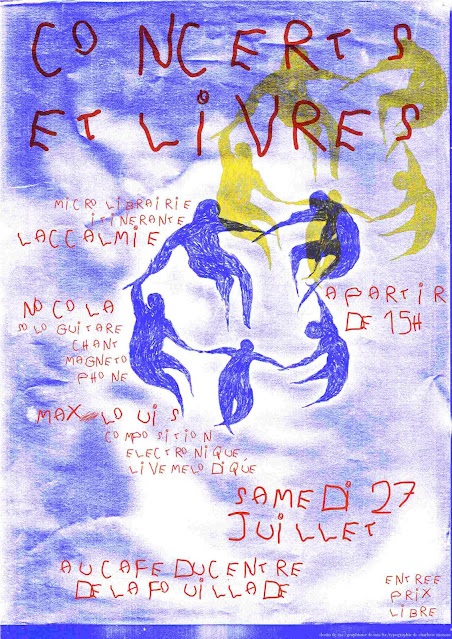 CONCERTS
ET LiVRES
MICRO LIBRAIRIE
ITINERANTE
LACCALMIE
NOCOLA
SOLO GUITARE
CHANT
MAGNETO
PHONE
A PARTIR
DE 15H
MAX LOUIS
COMPOSITION
ELECTRONIQUE,
LIVE MELODIQUE
SAMEDI 27
JUILLET
AU CAFE DU CENTRE
DE LA FOUILLADE
ENTREE
PRIX
LIBRE